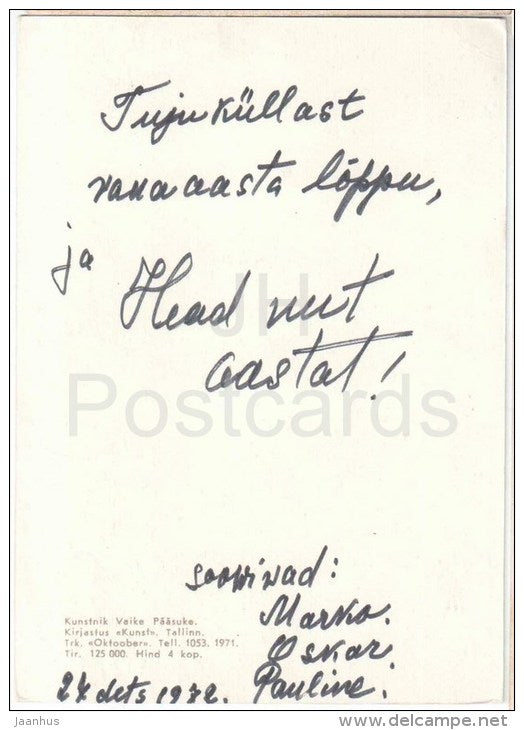 Tujuküllast
vana aasta lõppu,
ja
Head uut
aastat!
JH
Postcards
soovivad:
Marko.
Oskar
Pauline.
Kunstnik Veike Pääsuke.
Kirjastus «Kunst». Tallinn.
Trk. «Oktoober». Tell. 1053. 1971.
Tir. 125 000. Hind 4 kop.
24 dets 1972.
jaanhus
www.delcampe.net